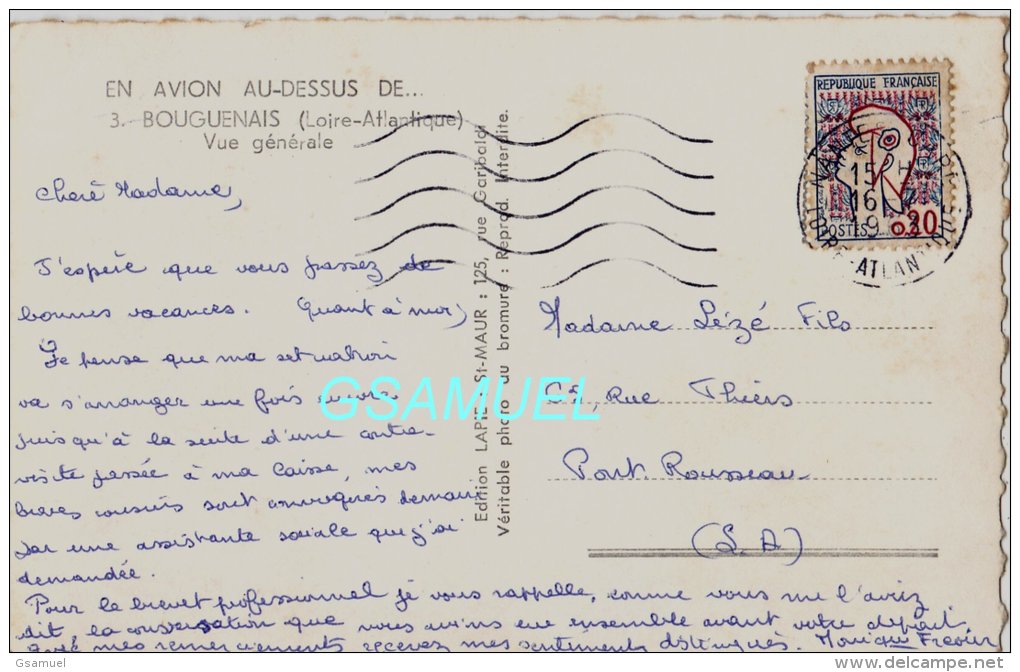 EN AVION AU-DESSUS DE...
3. BOUGUENAIS (Loire-Atlantique)
Vue générale
Chère Madame,
J'espère que vous passez de
bonnes vacances. Quant à moi,
Je pense que ma situation
va s'arranger une fois encore
jusqu'à la suite d'une contre-
visite passée à ma Caisse, mes
sont convoqués demain
par une assistante sociale que j'ai
demandée.
Pour le brevet professionnel je vous rappelle, comme vous me l'aviez
dit, la conversation que nous avions eu ensemble avant votre départ.
Avec mes remerciements recevez mes sentiments distingués. Monique
Edition LAPIE, St-MAUR : 125, rue Garibaldi
Véritable photo au bromure : Reprod. Interdite.
REPUBLIQUE FRANÇAISE
POSTES 0,20
15 H
16
19
LOIRE-ATLANTIQUE
Madame Lézé Fils
Rue Thiers
Pont. Rousseau
(L. A)
GSAMUEL
Gsamuel
http://www.delcampe.net